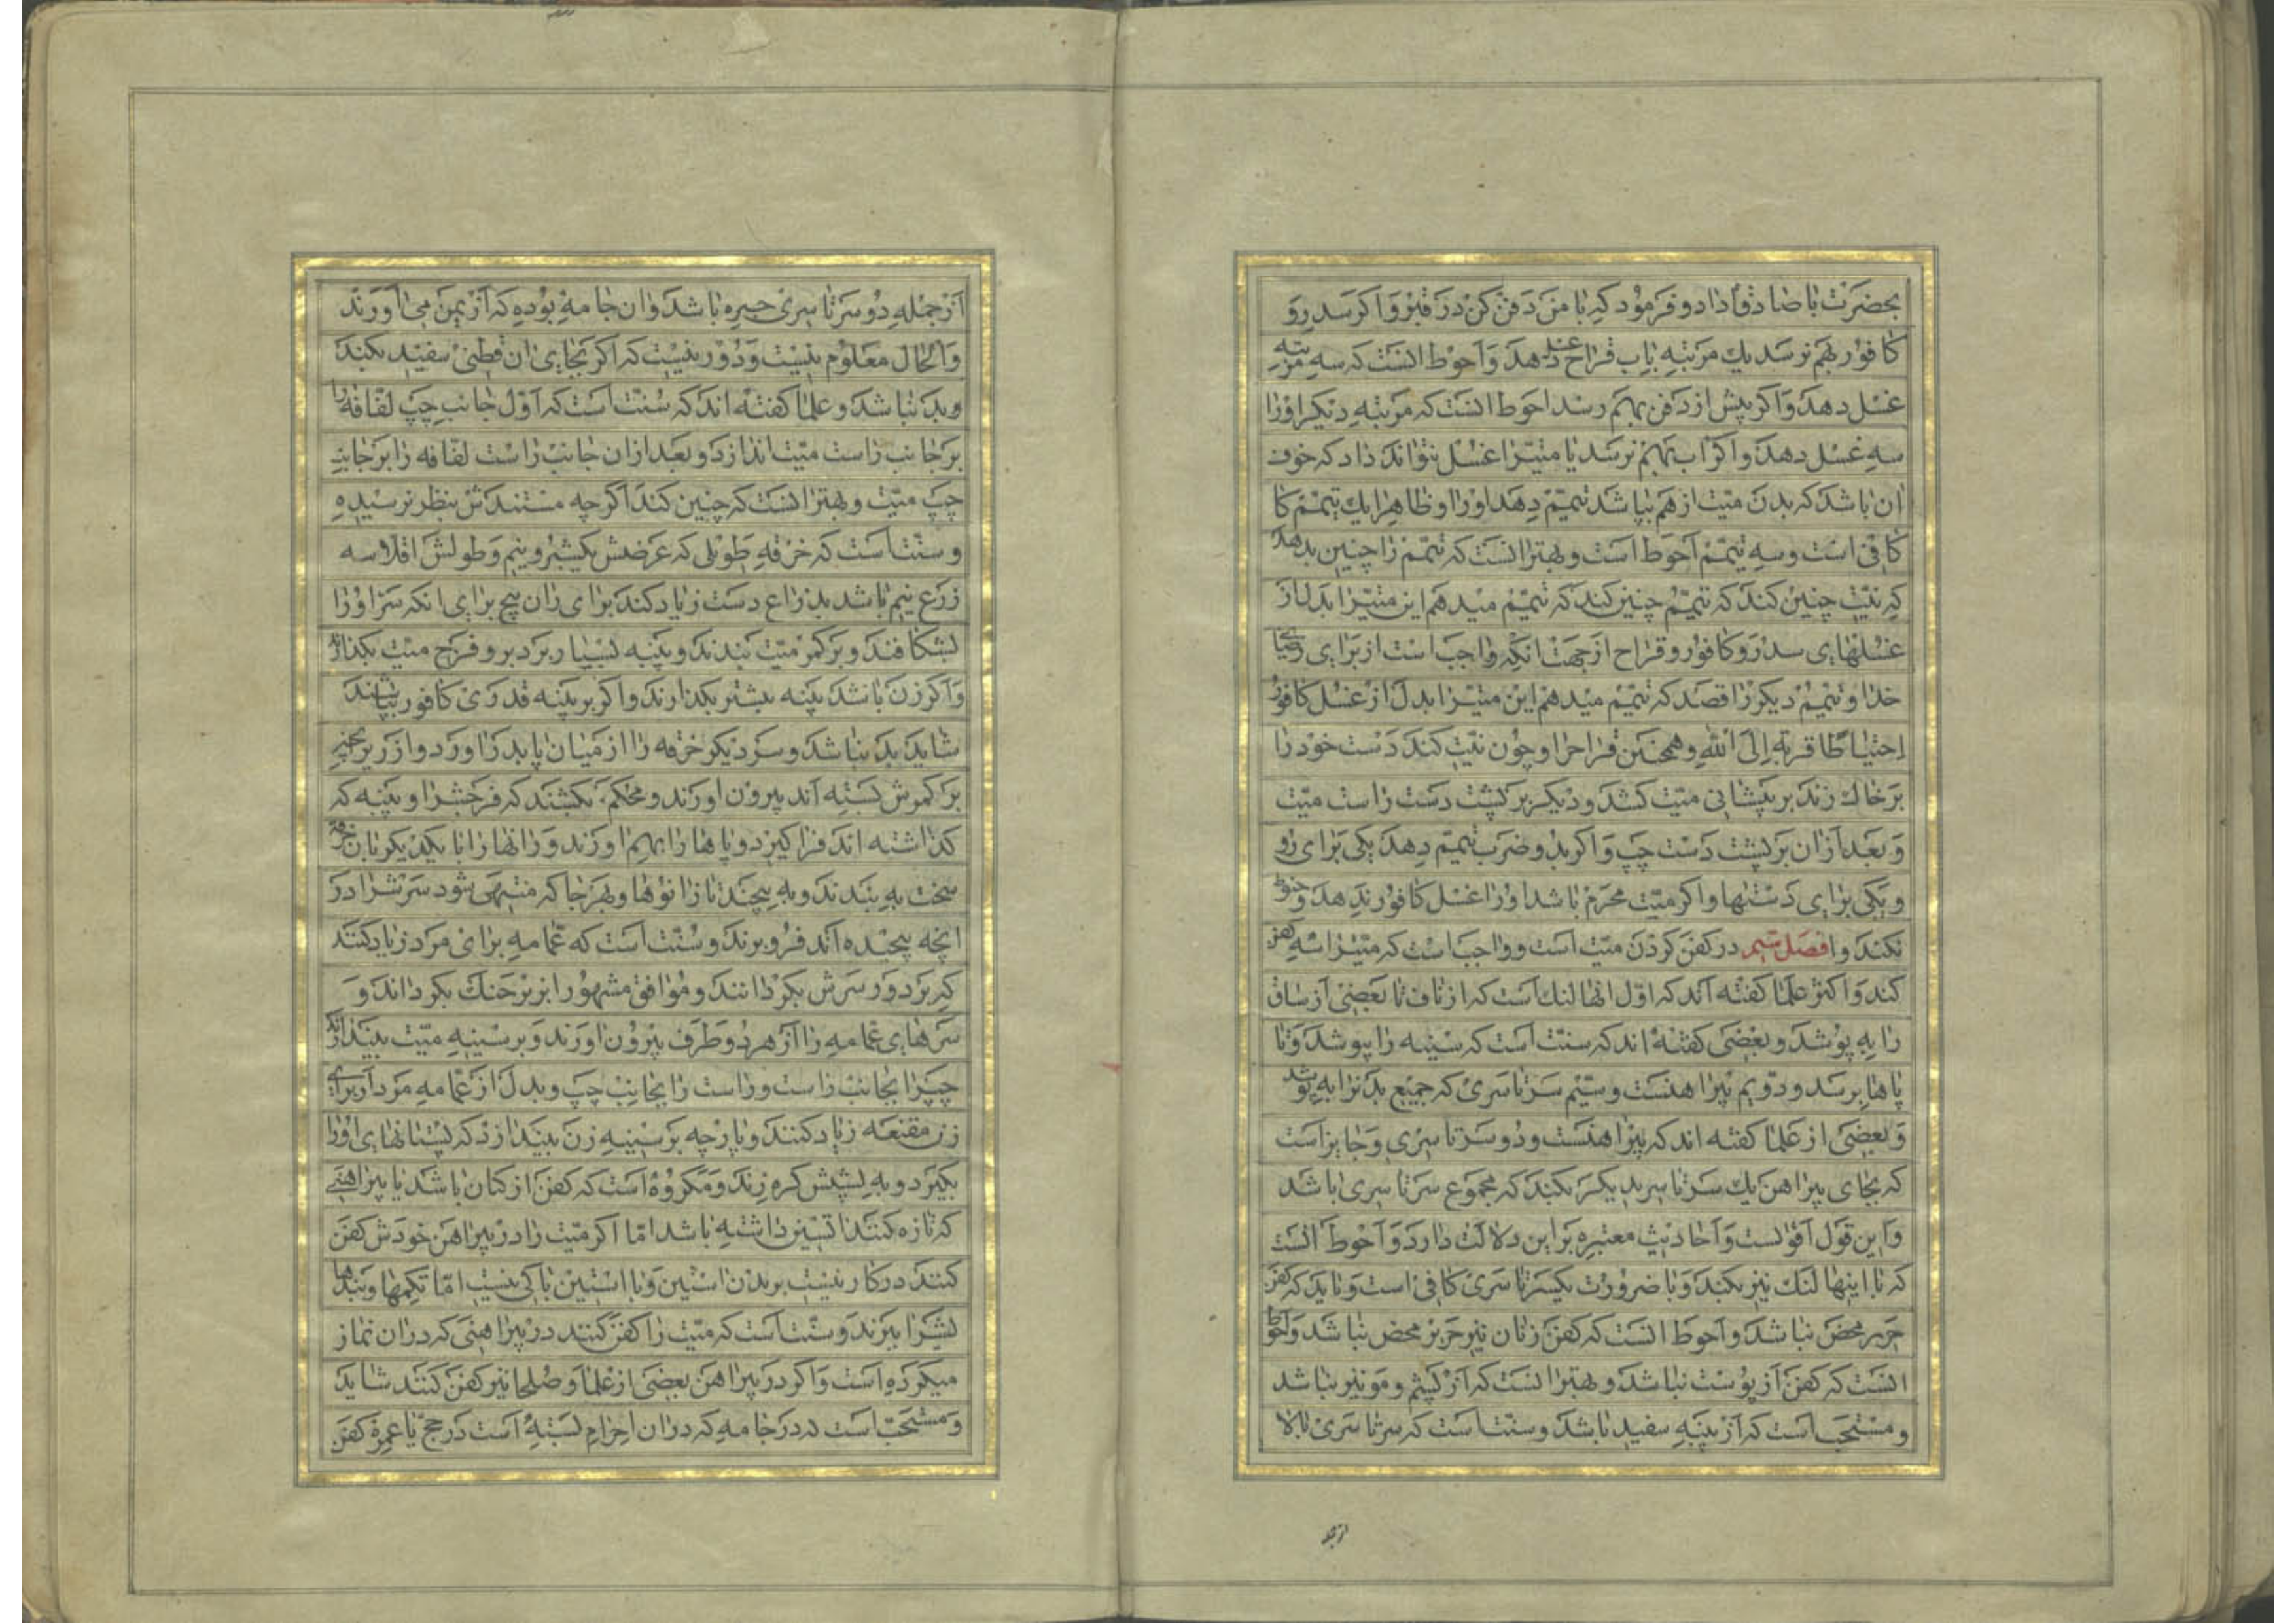 بحضرت با صادق داد و فرمود که با من دفن کن در قبر و اکر سدر و
کافور بهم نرسد یك مرتبه باب قراح غسل دهد و احوط انست که سه مرتبه
غسل دهد و اکر پیش از دفن بهم رسد احوط انست که مرتبه دیکر او را
سه غسل دهد و اکر اب بهم نرسد یا میت را غسل نتواند داد که خوف
ان باشد که بدن میت از هم بپاشد تیمم دهد او را و ظاهرا یك تیمم کا
کافی است و سه تیمم احوط است و بهتر انست که تیمم را چنین بدهد
که نیت چنین کند که تیمم چنین کند که تیمم میدهم این میت را بدل از
غسلهای سدر و کافور و قراح از جهت انکه واجب است از برای رضای
خدا و تیمم دیکر را قصد که تیمم میدهم این میت را بدل از غسل کافور
احتیاطا قربة الی الله و همچنین قراح را و چون نیت کند دست خود را
بر خاك زند بر پیشانی میت کشد و دیکر بر پشت دست راست میت
و بعد از ان بر پشت دست چپ و اکر بدو ضرب تیمم دهد یکی برای رو
و یکی برای دستها و اکر میت محرم باشد او را غسل کافور ندهد و حنوط
نکند و ا فصل سیم در کفن کردن میت است و واجب است که میت را سه کفن
کند و اکثر علما کفته اند که اول انها لنك است که از ناف تا بعضی از ساق
را به پوشد و بعضی کفته اند که سنت است که سینه را بپوشد و تا
پاها برسد و دویم پیراهنست و سیم سرتاسری که جمیع بدن را به پوشد
و بعضی از علما کفته اند که پیراهنست و دو سرتاسری و جایز است
که بجای پیراهن یك سرتاسر دیکر بکند که مجموع سرتاسری باشد
و این قول اقواست و احادیث معتبره بر این دلالت دارد و احوط انست
که با اینها لنك نیز بکند و با ضرورت یکسرتاسری کافی است و باید که کفن
حریر محض نباشد و احوط انست که کفن زنان نیز حریر محض نباشد و احوط
انست که کفن از پوست نباشد و بهتر انست که از پشم و مو نیز نباشد
و مستحب است که از پنبه سفید باشد و سنت است که سرتاسری بالا
از جمله
از جمله دو سرتاسری حبره باشد و ان جامه بوده که از یمن می اوردند
و الحال معلوم نیست و دور نیست که اکر بجای ان قطنی سفید بکنند
و بد نباشد و علما کفته اند که سنت است که اول جانب چپ لفافه را
بر جانب راست میت اندازد و بعد از ان جانب راست لفافه را بر جانب
چپ میت و بهتر انست که چنین کند اکرچه مستندش بنظر نرسیده
و سنت است که خرقه طویلی که عرضش یکشبر و نیم و طولش اقلا سه
زرع نیم باشد بذراع دست زیاد کند برای ران پیچ برای انکه سر او را
بشکافند و بر کمر میت بندند و پنبه بسیار بر دبر و فرج میت بکذارند
و اکر زن باشد پنبه بیشتر بکذارند و اکر بر پنبه قدری کافور بپاشند
شاید بد نباشد و سر دیکر خرقه را از میان پا بدر اورد و از زیر انچه
بر کمرش بسته اند بیرون اورند و محکم بکشند که فرجش را و پنبه که
کذاشته اند فرا کیرد و پاها را بهم اورند و رانها را با یکدیکر بان خرقه
سخت به بندند و به پیچند تا زانوها و بهر جا که منتهی شود سرش را در
انچه پیچیده اند فرو برند و سنت است که عمامه برای مرد زیاد کنند
که بر دور سرش بکردانند و موافق مشهور از زیر حنك بکرداند و
سرهای عمامه را از هر دو طرف بیرون اورند و بر سینه میت بیندازند
چپ را بجانب راست و راست را بجانب چپ و بدل از عمامه مرد از برای
زن مقنعه زیاد کنند و پارچه بر سینه زن بیندازد که پستانهای او را
بکیرد و به پشتش کره زند و مکروه است که کفن از کتان باشد یا پیراهنی
که تازه کنند استین داشته باشد اما اکر میت را در پیراهن خودش کفن
کنند درکار نیست بریدن استین و با استین باکی نیست اما تکمها و بندها
یش را ببرند و سنت است که میت را کفن کنند در پیراهنی که در ان نماز
میکرده است و اکر در پیراهن بعضی از علما و صلحا نیز کفن کنند شاید
و مستحب است که در جامه که در ان احرام بسته است در حج یا عمره کفن